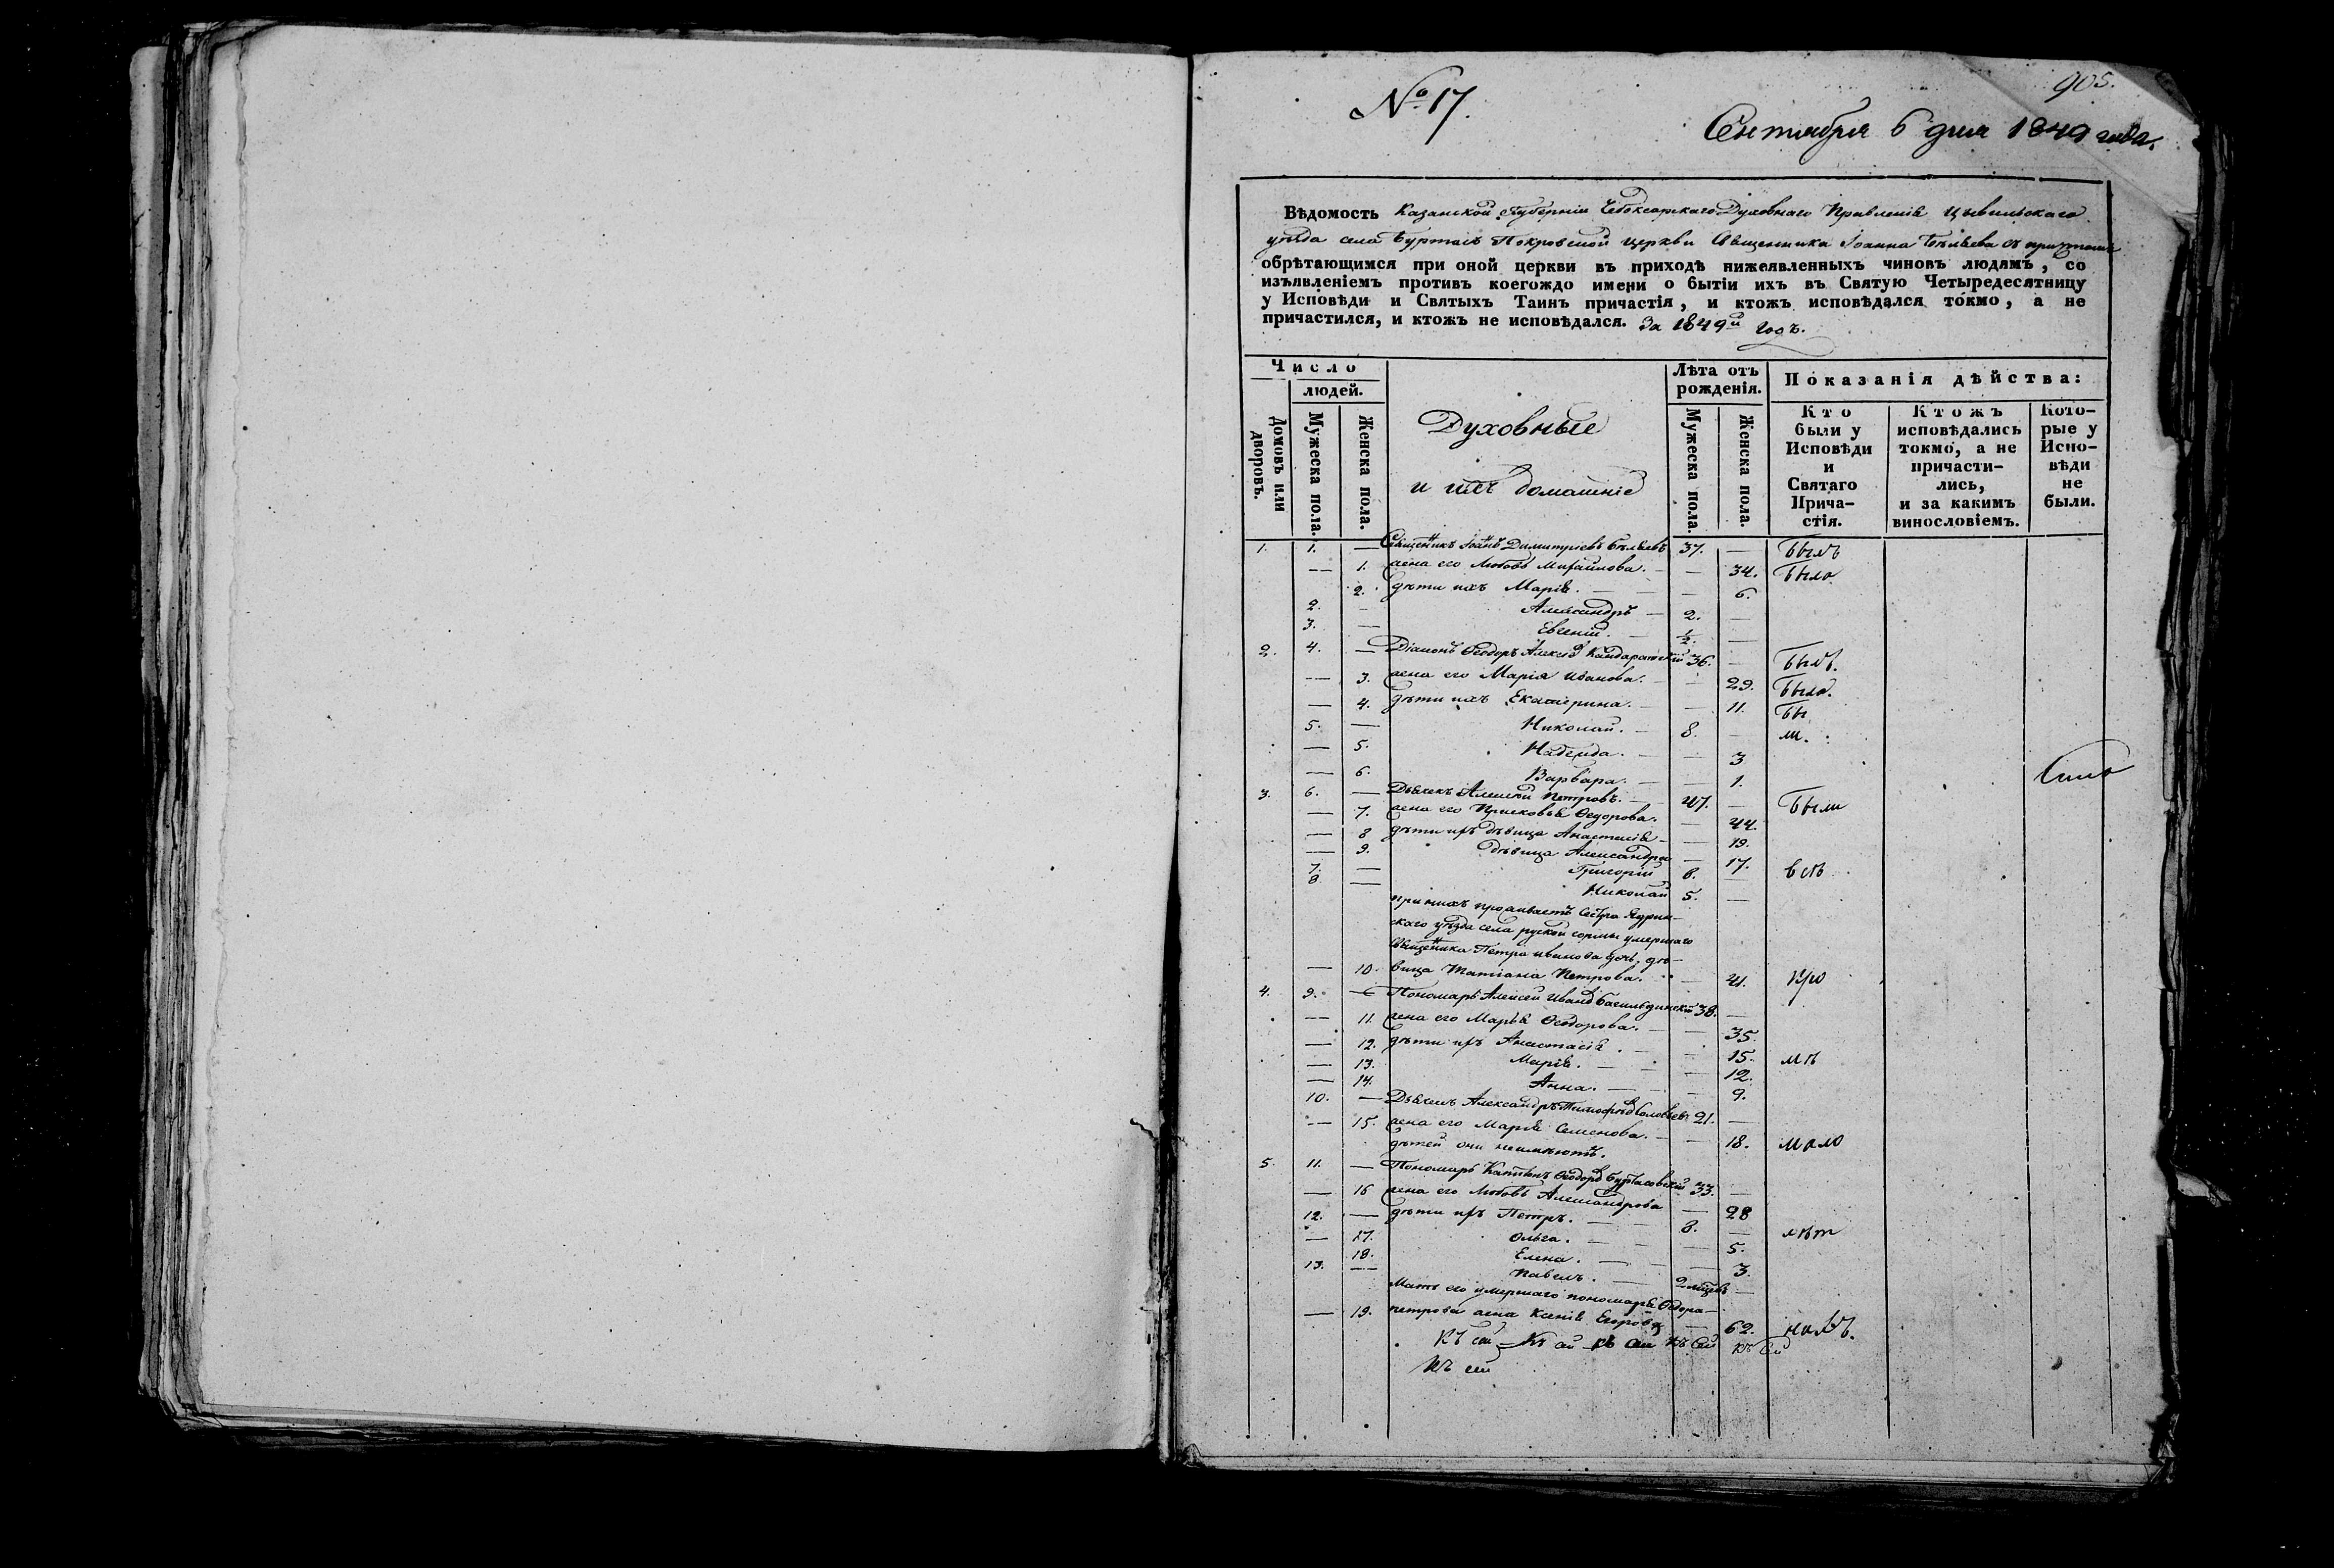 905.
№ 17.
Сентября 6 дня 1849 года.
Вѣдомость Казанской Губерніи Чебоксарскаго Духовнаго Правленія Цывильскаго
уѣзда села Буртасъ Покровской церкви Священника Іоанна Бѣляева съ причтомъ
обрѣтающимся при оной церкви въ приходѣ нижеявленныхъ чиновъ людямъ, со
изъявленіемъ противъ коегождо имени о бытіи ихъ въ Святую Четыредесятницу
у Исповѣди и Святыхъ Таинъ причастія, и ктожъ исповѣдался токмо, а не
причастился, и ктожъ не исповѣдался. За 1849й годъ.
Число
людей.
Домовъ или дворовъ.
Мужеска пола.
Женска пола.
Духовные
и ихъ домашніе
Лѣта отъ рожденія.
Мужеска пола.
Женска пола.
Показанія дѣйства:
Кто были у Исповѣди и Святаго Прича-стія.
Ктожъ исповѣдались токмо, а не причасти-лись, и за какимъ винословіемъ.
Кото-рые у Испо-вѣди не были.
1. 1. — Священникъ Іоаннъ Димитріевъ Бѣляевъ 37. — былъ
— 1. жена его Любовь Михайлова. — — 34. была
2. дѣти ихъ Марія. — — 6.
2. — Александръ — 2. —
3. — Евгеній. — ½. —
2. 4. — Діаконъ Ѳеодоръ Алексѣев Кандаратскій 36. — былъ.
— 3. жена его Марія Иванова. — — 29. была.
— 4. дѣти ихъ Екатерина. — — 11. бы
5. — Николай. — 8. — ли.
— 5. Надежда. — — 3
— 6. Варвара. — — 1.
3. 6. — Дьячекъ Алексѣй Петровъ. — 47. — были
— 7. жена его Прасковья Ѳедорова. — 44.
— 8 дѣти ихъ дѣвица Анастасія — — 19.
— 9. дѣвица Александра — 17.
7. — Григорій 8. — всѣ
8. — Николай 5. —
при нихъ проживаетъ Сестра Ядрин-
скаго уѣзда села руской сормы умершаго
Священника Петра Иванова дочь, дѣ-
— 10. вица Татіана Петрова. — 41. кро
4. 9. — Пономарь Алексей Иванов Басильдинскій 38. —
— 11. жена его Марья Ѳеодорова. — — 35.
— 12. дѣти ихъ Анастасія. — — 15. мѣ
— 13. Марія. — — 12.
— 14. Анна. — — 9.
10. — Дьячекъ Александръ Тимофѣев Соловьевъ 21. —
— 15. жена его Марія Семенова. — — 18. мало
дѣтей они неимѣютъ.
5. 11. — Пономарь Капитонъ Ѳеодоров Буртасовскій 33. —
— 16 жена его Любовь Александрова — 28
12. — дѣти ихъ Петръ. — 8. — лѣт
— 17. Ольга. — — 5.
18. Елена. — — 3.
13. — Павелъ. — 2 мѣсяцъ —
Мать его умершаго пономаря Ѳедора
— 19. петрова жена Ксенія Егорова — 62. нихъ.
Къ сей Къ сей къ сей къ Сей къ Сей
Къ сей